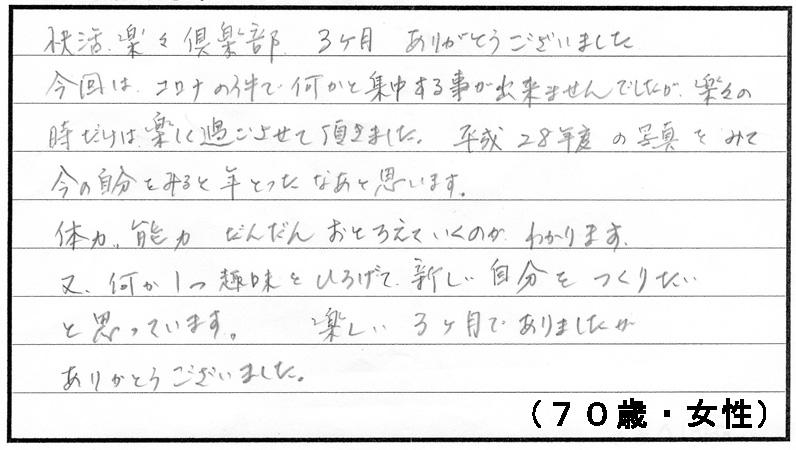 快活、楽々倶楽部 3ヶ月 ありがとうございました
今回は、コロナの件で何かと集中する事が出来ませんでしたが、楽々の
時だけは、楽しく過ごさせて頂きました。 平成28年度の写真をみて
今の自分をみると年とったなあと思います。
体力、能力 だんだんおとろえていくのがわかります。
又、何か1つ趣味をひろげて、新しい自分をつくりたい
と思っています。 楽しい3ヶ月でありましたが
ありがとうございました。
(70歳・女性)